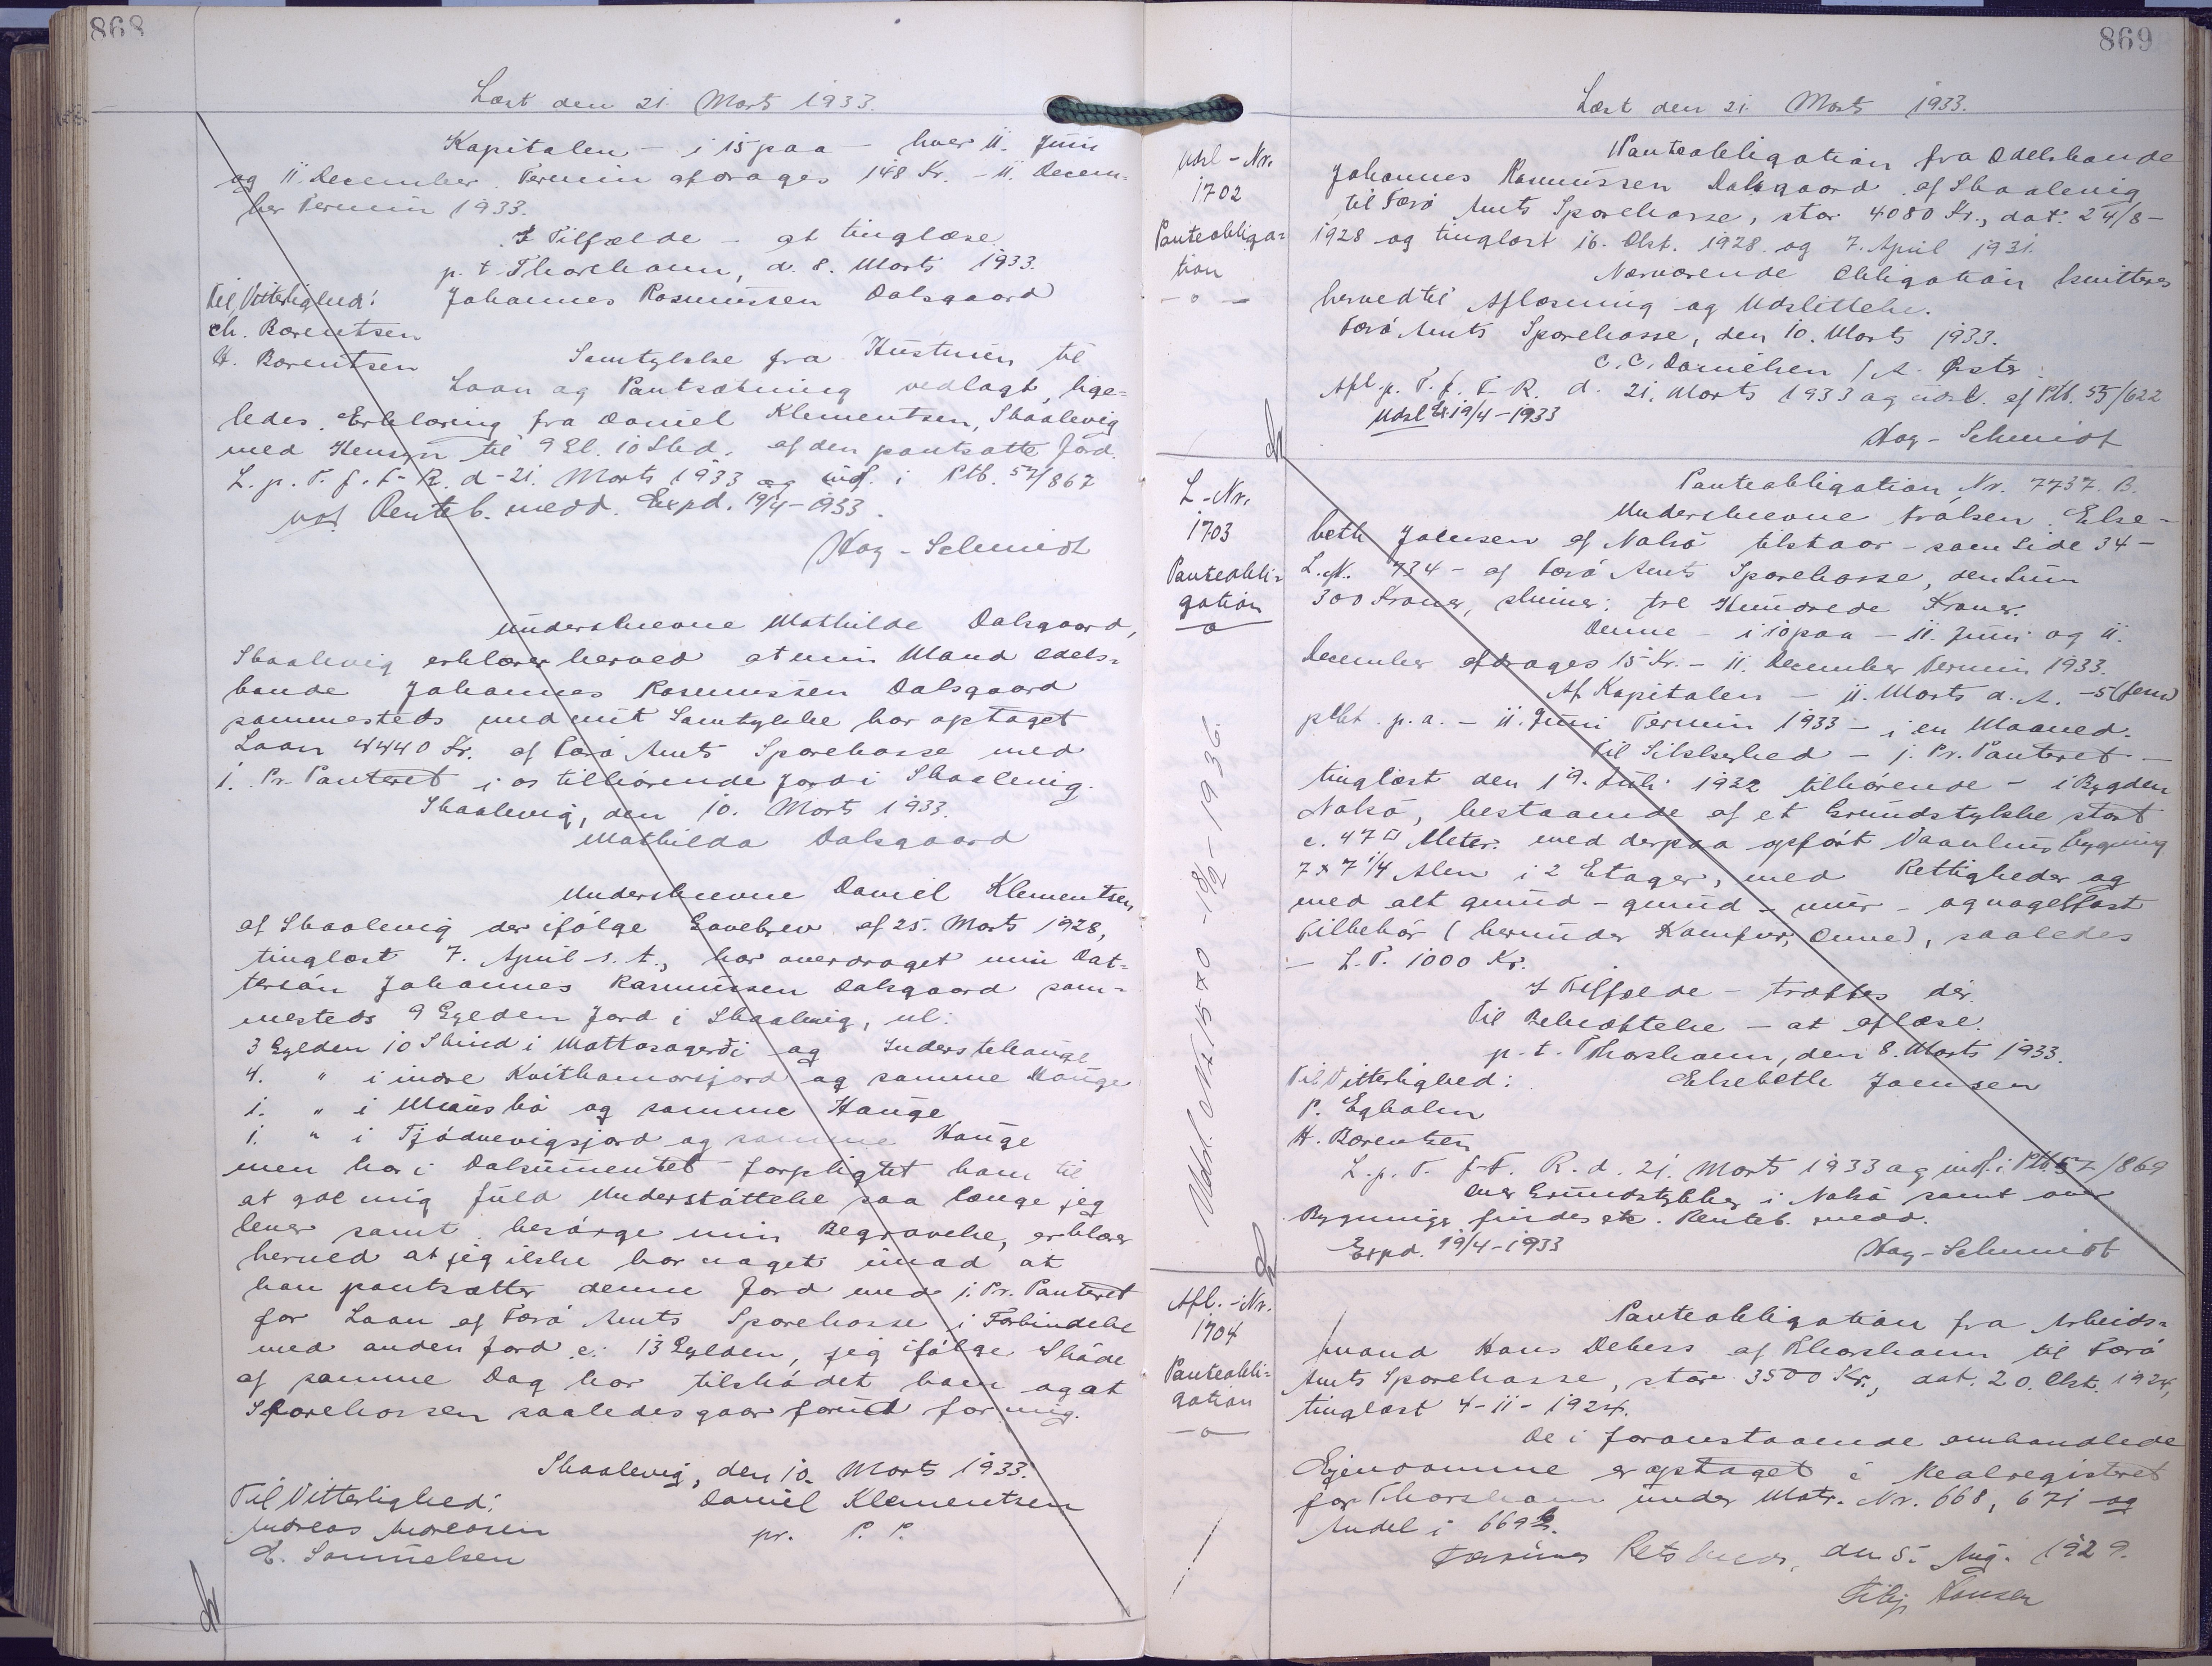 868
Læst den 21. Marts 1933.
Kapitalen - i 15 paa - hver 11. Juni
og 11. December Termin afdrages 148 Kr. - 11. Decem-
ber Termin 1933.
I Tilfælde - at tinglæse.
p. t. Thorshavn, d. 8. Marts 1933.
Til Vitterlighed: Johannes Rasmussen Dalsgaard
Ch. Bærentsen
H. Bærentsen Samtykke fra Hustruen til
Laan og Pantsætning vedlagt, lige-
ledes Erklæring fra Daniel Klementsen, Skaalevig
med Hensyn til 9 Gl. 10 Skd. af den pantsatte Jord.
L. p. T. f. F. R. d. 21. Marts 1933 og indf. i Ptb. 57/867
Renteb. medd. Expd. 19/4-1933.
Hag-Schmidt
Underskrevne Mathilde Dalsgaard,
Skaalevig erklærer herved at min Mand Odels-
bonde Johannes Rasmussen Dalsgaard
sammesteds med mit Samtykke har optaget
Laan 4440 Kr. af Færø Amts Sparekasse med
1. Pr. Panteret i os tilhørende Jord i Skaalevig.
Skaalevig, den 10. Marts 1933.
Mathilda Dalsgaard
Underskrevne Daniel Klementsen
af Skaalevig der ifølge Gavebrev af 25. Marts 1928,
tinglæst 7. April s. A., har overdraget min Dat-
tersøn Johannes Rasmussen Dalsgaard sam-
mesteds 9 Gylden Jord i Skaalevig, nl:
3 Gylden 10 Skind i Mattasagerði og Inderstehauge
4. " i indre Kvithamarsjord og samme Hauge
1. " i Miðusbø og samme Hauge
1. " i Tjødnevigsjord og samme Hauge
men har i Dokumentet forpligtet ham til
at give mig fuld Understøttelse saa længe jeg
lever samt besørge min Begravelse, erklærer
herved at jeg ikke har noget imod at
han pantsætter denne Jord med 1. Pr. Panteret
for Laan af Færø Amts Sparekasse i Forbindelse
med anden Jord e: 13 Gylden, jeg ifølge Skøde
af samme Dag har tilskødet ham og at
Sparekassen saaledes gaar forud for mig.
Skaalevig, den 10. Marts 1933.
Til Vitterlighed: Daniel Klementsen
Andreas Andreasen pr. P. P.
E. Samuelsen
869
Læst den 21. Marts 1933.
Udsl-Nr.
1702
Panteobliga-
tion
Panteobligation fra Odelsbonde
Johannes Rasmussen Dalsgaard af Skaalevig
til Færø Amts Sparekasse, stor 4080 Kr., dat. 24/8-
1928 og tinglæst 16. Okt. 1928 og 7. April 1931.
Nærværende Obligation kvitteres
herved til Aflæsning og Udslettelse.
Færø Amts Sparekasse, den 10. Marts 1933.
C. C. Danielsen / A. Øster
Afl. p. T. f. F. R. d. 21. Marts 1933 og udsl. af Ptb. 55/622
Udsl. Ex. 19/4-1933
Hag-Schmidt
L-Nr.
1703
Panteobli-
gation
Udsl. Nr 1570 - 18/2 - 1936.
Panteobligation Nr. 7737. B.
Underskrevne Frøken Else-
beth Joensen af Nolsø tilstaar - som Side 34 -
L. N. 734 - af Færø Amts Sparekasse, den Sum
300 Kroner, skriver: tre Hundrede Kroner.
Denne - i 10 paa - 11. Juni og 11.
December afdrages 15 Kr. - 11. December Termin 1933.
Af Kapitalen - 11. Marts d. A. - 5 (fem)
pCt. p. a. - 11. Juni Termin 1933 - i en Maaned.
Til Sikkerhed - 1. Pr. Panteret -
tinglæst den 19. Juli 1932 tilhørende - i Bygden
Nolsø, bestaaende af et Grundstykke stort
c. 47 □ Meter. med derpaa opført Vaaningsbygning
7 x 7 1/4 Alen i 2 Etager, med Rettigheder og
med alt grund - grund - mur - og nagelfast
Tilbehør (herunder Komfur, Ovne), saaledes
- L. T. 1000 Kr.
I Tilfælde - træffes der.
Til Bekræftelse - at aflæse.
p. t. Thorshavn, den 8. Marts 1933.
Til Vitterlighed: Elsebeth Joensen
P. Egholm
H. Bærentsen
L. p. T. f. F. R. d. 21. Marts 1933 og indf. i Ptb. 57/869
over Grundstykker i Nolsø samt over
Bygninger findes Renteb. medd.
Expd. 19/4-1933 Hag-Schmidt
Afl.-Nr.
1704
Panteobli-
gation
Panteobligation fra Arbeids-
mand Hans Debess af Thorshavn til Færø
Amts Sparekasse, stor 3500 Kr., dat. 20. Okt. 1924,
tinglæst 4-11-1924.
De i foranstaaende omhandlede
Ejendomme er optaget i Realregisteret
for Thorshavn under Matr. Nr. 668, 671 og
Andel i 669 b.
Færøernes Retskreds, den 5. Aug. 1929.
Hansen